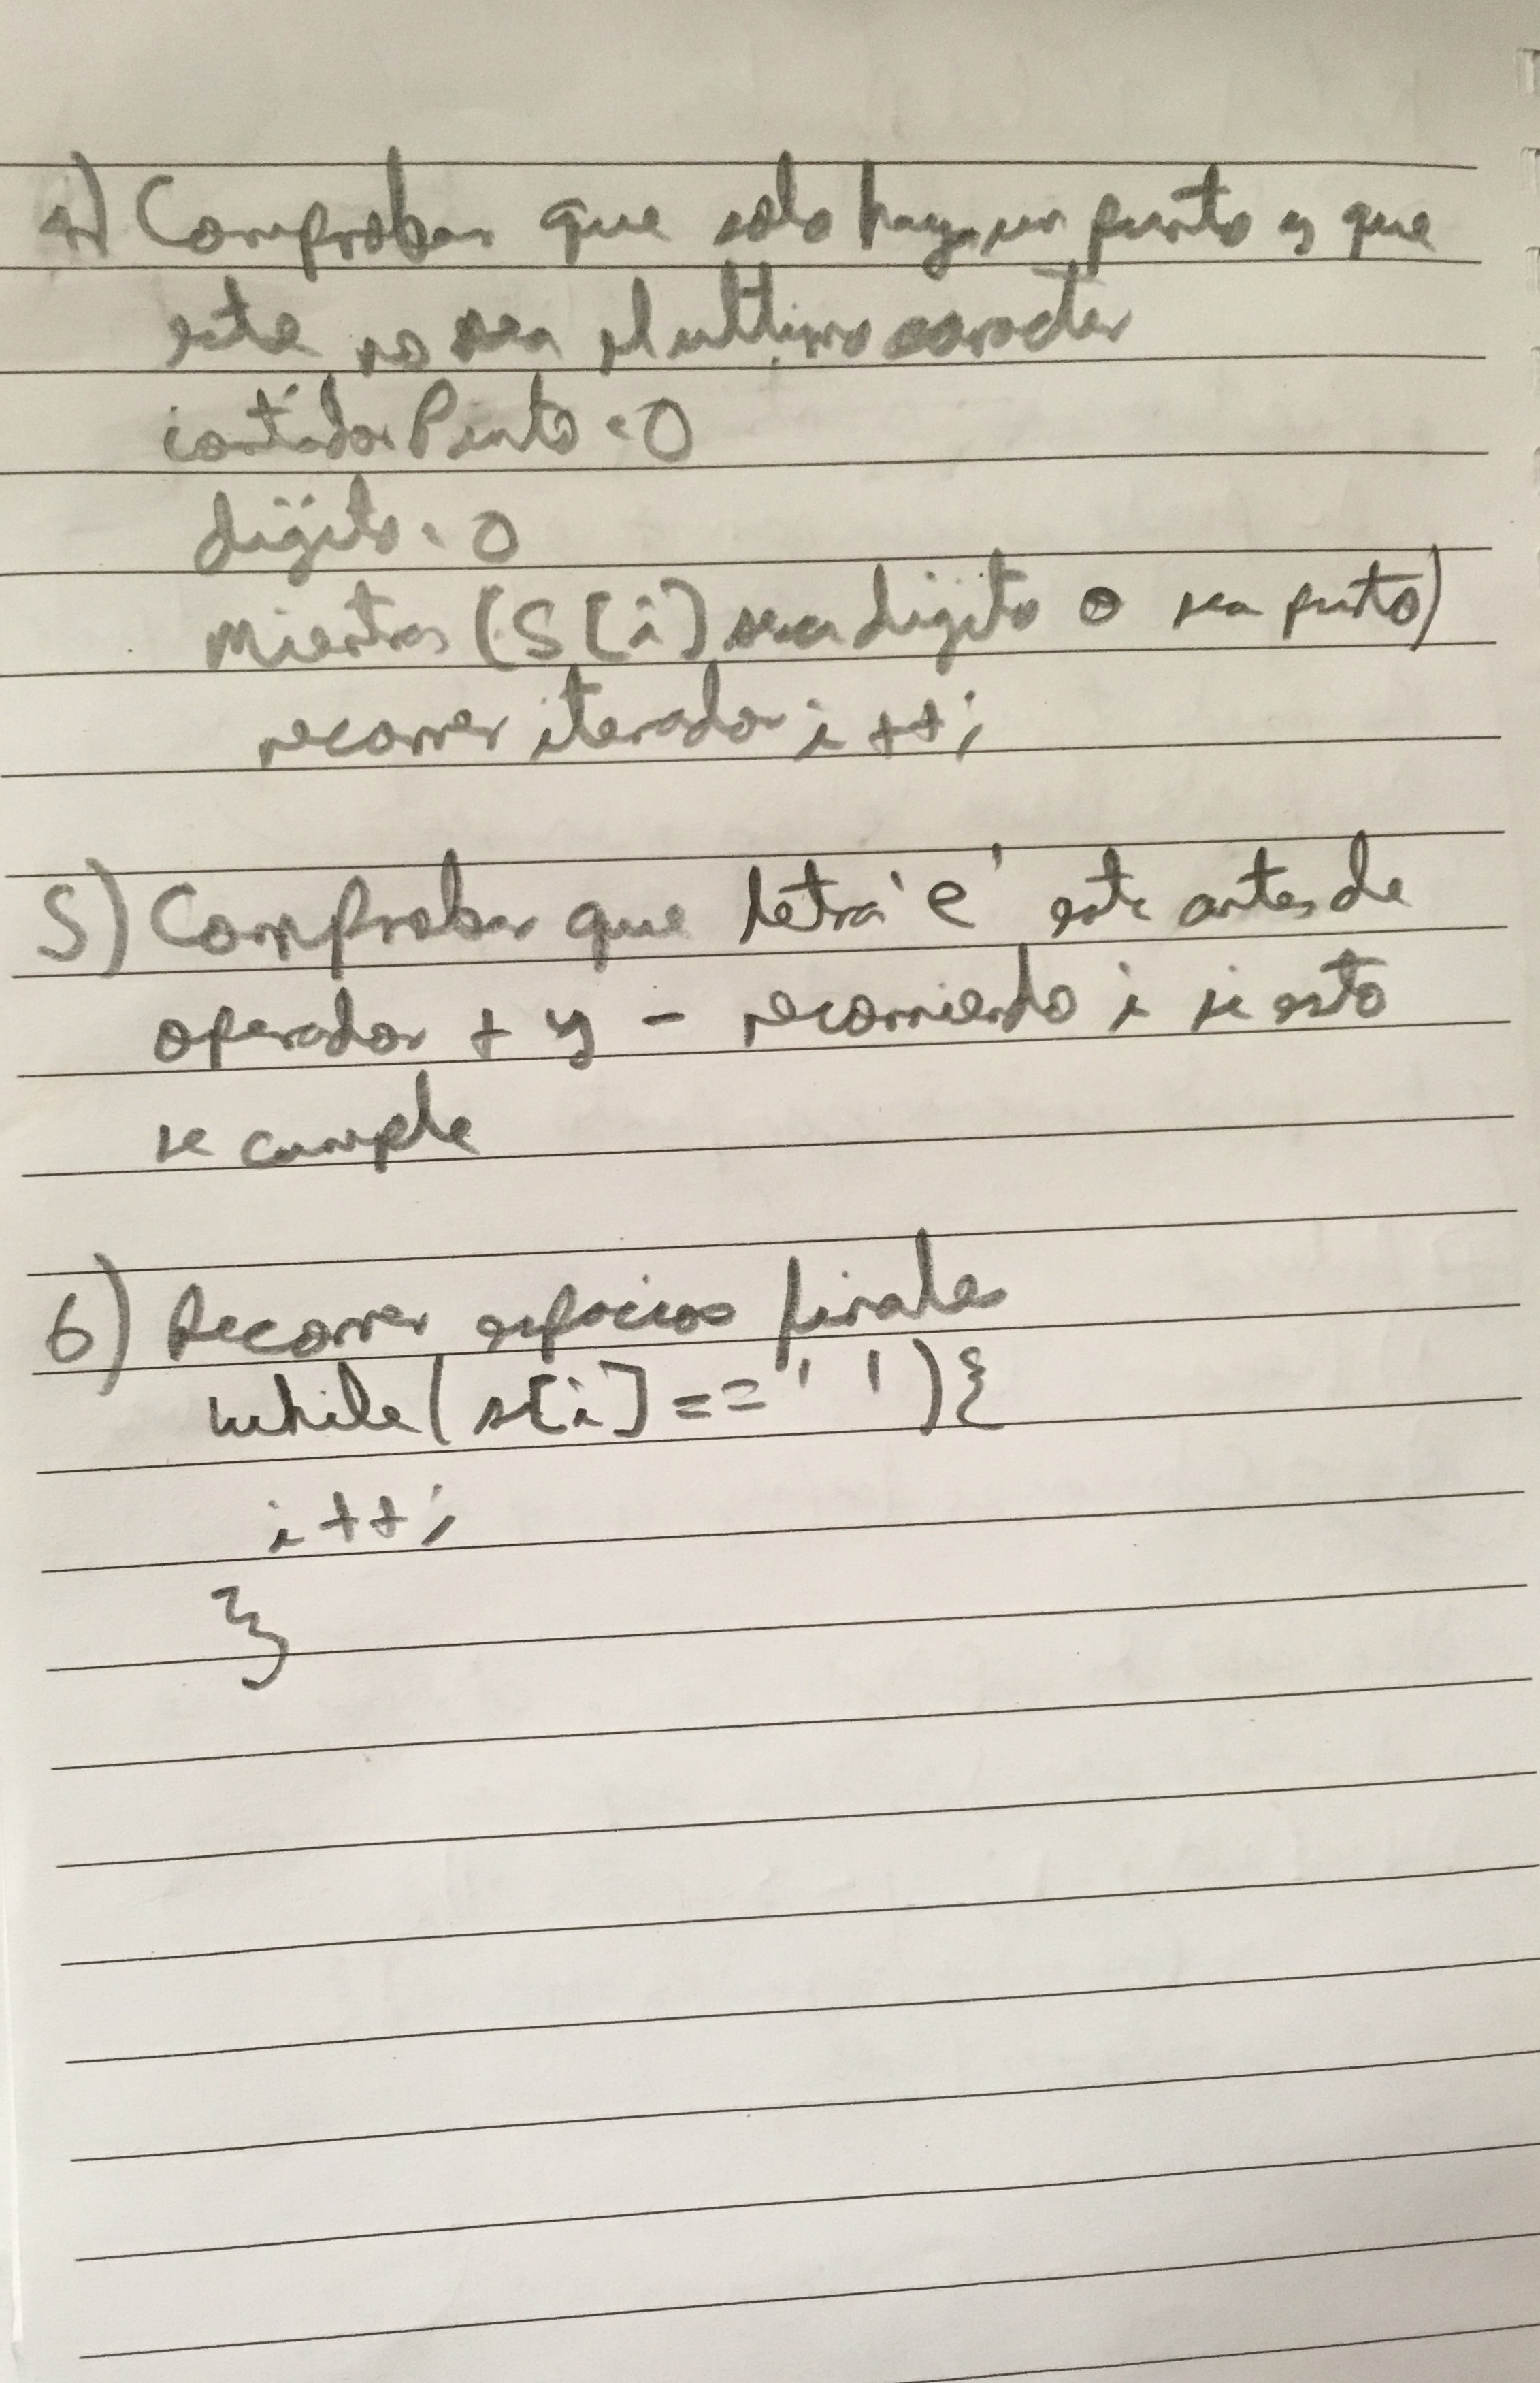 4) Comprobar que solo haya un punto y que
este no sea el ultimo caracter
contador Punto = 0
digito = 0
Mientras (S[i] sea digito o sea punto)
recorrer iterador i++;
5) Comprobar que letra 'e' este antes de
operador + y - recorriendo i si esto
se cumple
6) Recorrer espacios finales
while(s[i]==' '){
i++;
}